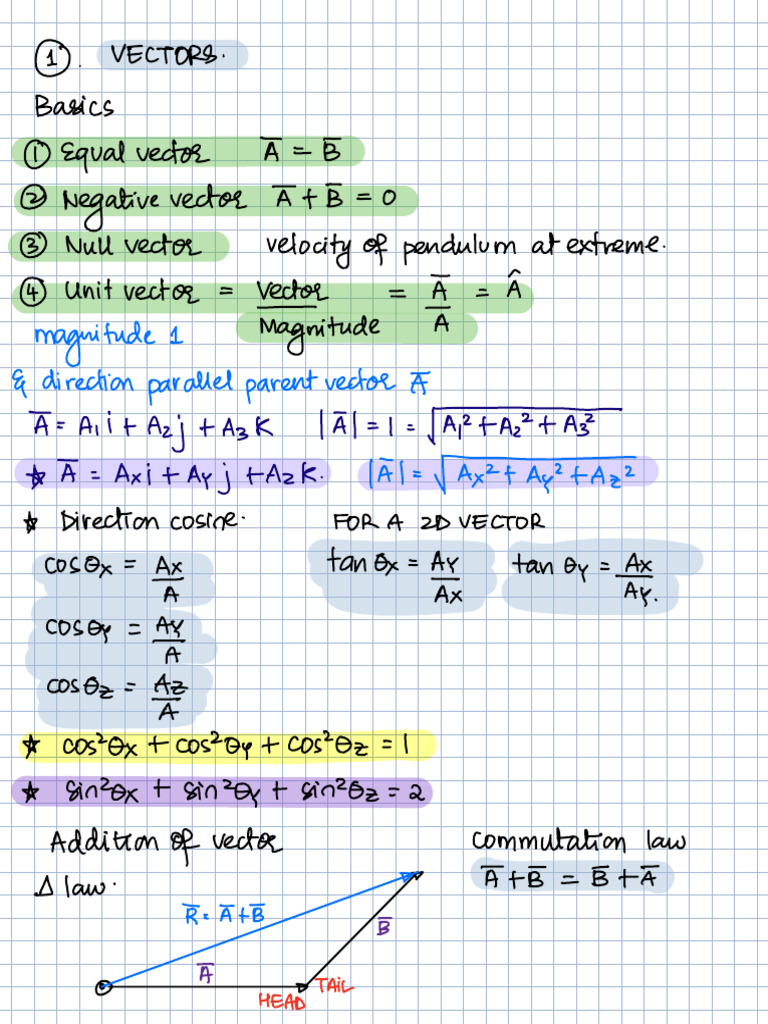 ① . VECTORS.
Basics
① Equal vector A̅ = B̅
② Negative vector A̅ + B̅ = 0
③ Null vector velocity of pendulum at extreme.
④ Unit vector = Vector/Magnitude = A̅/A = Â
magnitude 1
& direction parallel parent vector A̅
A̅ = A₁i + A₂j + A₃K |A̅| = 1 = √(A₁² + A₂² + A₃²)
★ A̅ = Axi + Ayj + Azk. |A̅| = √(Ax² + Ay² + Az²)
★ Direction cosine. FOR A 2D VECTOR
cosθx = Ax/A tanθx = Ay/Ax tanθy = Ax/Ay.
cosθy = Ay/A
cosθz = Az/A
★ cos²θx + cos²θy + cos²θz = 1
★ sin²θx + sin²θy + sin²θz = 2
Addition of vector Commutation law
Δ law. A̅ + B̅ = B̅ + A̅
R̅ = A̅ + B̅
B̅
A̅
TAIL
HEAD